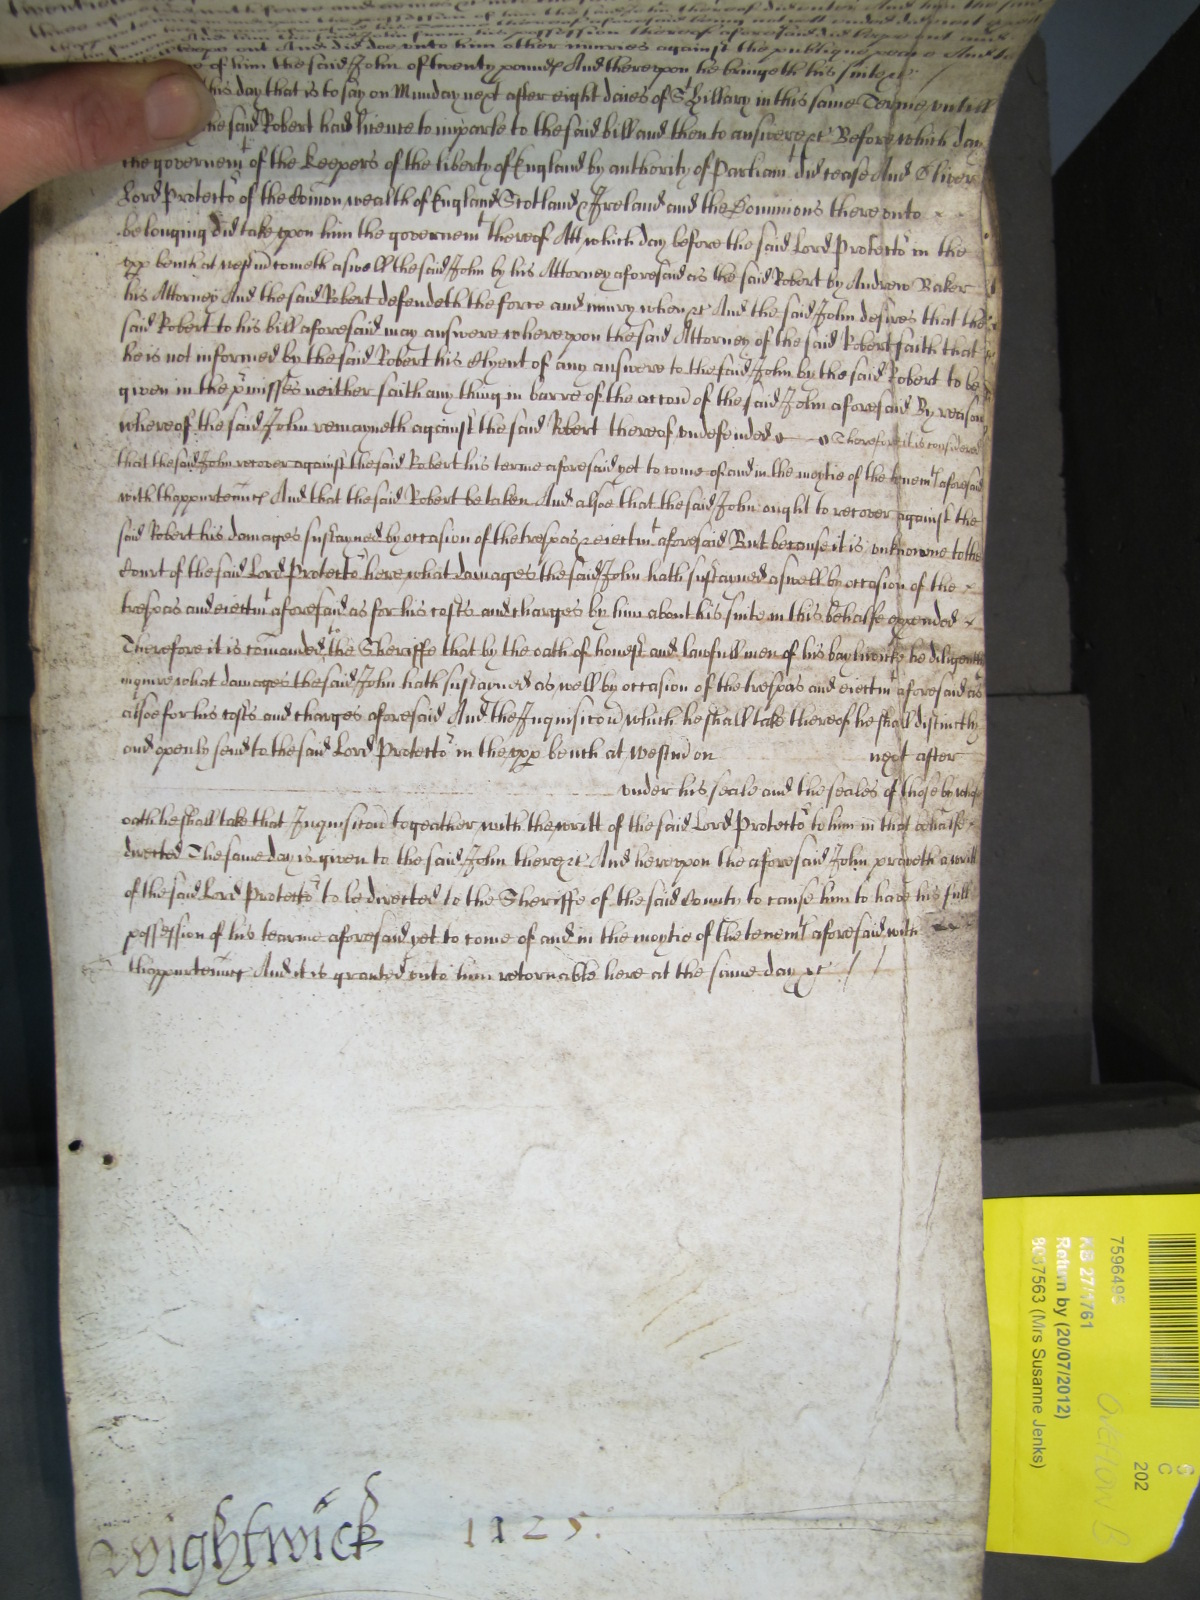 of him the said John of twenty pounds And thereupon he bringeth his suite &c
this day that is to say on Munday next after eight daies of St Hillary in this same Terme untill
the said Robert had licence to imparle to the said bill and then to answere &c Before which day
the governemt of the Keepers of the liberty of England by authority of Parliamt did cease And Oliver
Lord Protector of the Comon wealth of England Scotland & Ireland and the Dominions thereunto
belonging did take upon him the governemt thereof Att which day before the said Lord Protector in the
upp bench at Westm cometh aswell the said John by his Attorney aforesaid as the said Robert by Andrew Baker
his Attorney And the said Robert defendeth the force and iniury when &c And the said John desires that the
said Robert to his bill aforesaid may answere whereupon the said Attorney of the said Robert saith that
he is not informed by the said Robert his Clyent of any answere to the said John by the said Robert to be
given in the pmisses neither saith any thing in barre of the accon of the said John aforesaid By reason
whereof the said John remayneth against the said Robert thereof undefended Therefore it is considered
that the said John recover against the said Robert his terme aforesaid yet to come of and in the moytie of the tenemts aforesaid
with thappurtennces And that the said Robert be taken And alsoe that the said John ought to recover against the
said Robert his damages sustayned by occasion of the trespas & eiectmt aforesaid But because it is unknowne to the
Court of the said Lord Protector here what damages the said John hath sustayned aswell by occasion of the
trespas and eiectmt aforesaid as for his costs and charges by him about his suite in this behalfe expended
Therefore it is comanded to the Sheriffe that by the oath of honest and lawfull men of his baylywicke he diligently
inquire what damages the said John hath sustayned as well by occasion of the trespas and eiectmt aforesaid as
alsoe for his costs and charges aforesaid And the Inquisicon which he shall take thereof he shall distinctly
and openly send to the said Lord Protector in the upp bench at Westm on next after
under his seale and the seales of those by whose
oath he shall take that Inquisicon togeather with the writt of the said Lord Protector to him in that behalfe
directed The same day is given to the said John there &c And hereupon the aforesaid John prayeth a writt
of the said Lord Protector to be directed to the Sheriffe of the said County to cause him to have his full
possession of his tearme aforesaid yet to come of and in the moytie of the tenemts aforesaid with
thappurtennces And it is granted unto him retornable here at the same day &c
Wightwick 1125.
7596495
KB 27/1761
Return by (20/07/2012)
8037563 (Mrs Susanne Jenks)
202